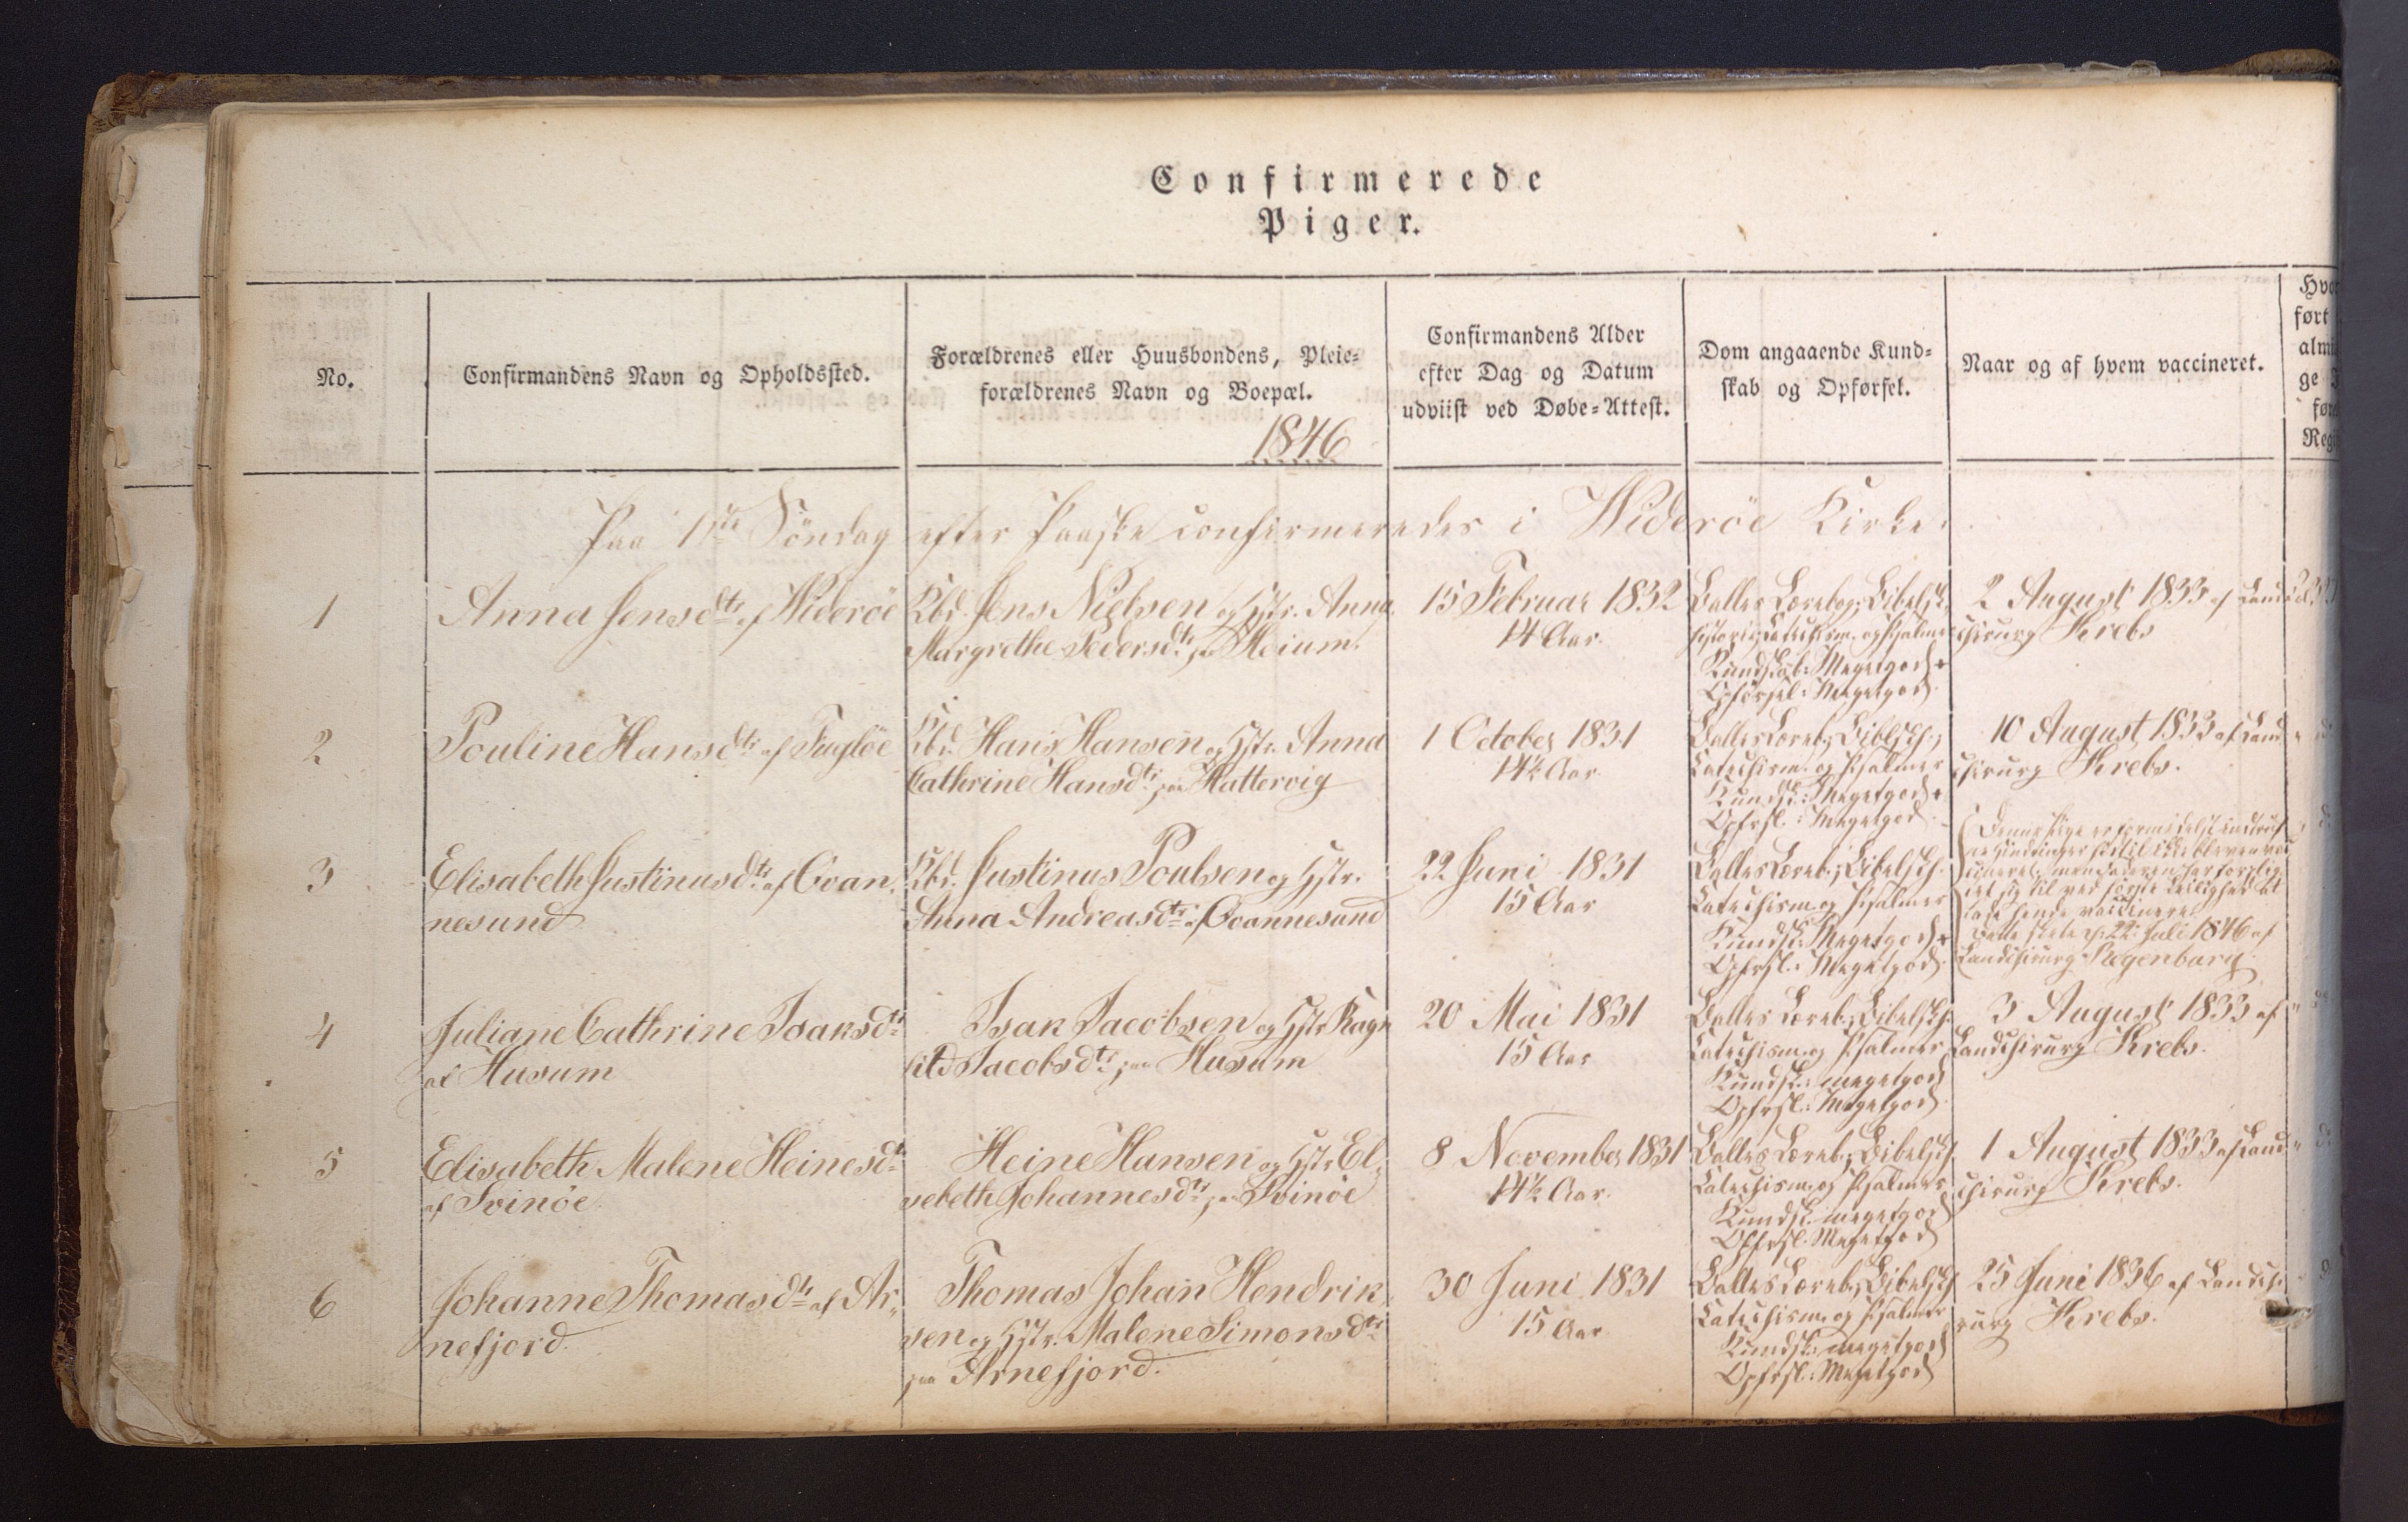 Confirmerede
Piger.
No.
Confirmandens Navn og Opholdssted.
Forældrenes eller Huusbondens, Pleie-
forældrenes Navn og Boepæl.
1846
Confirmandens Alder
efter Dag og Datum
udviist ved Døbe-Attest.
Dom angaaende Kund-
skab og Opførsel.
Naar og af hvem vaccineret.
Paa 1ste Söndag efter Paaske confirmeredes i Wideröe Kirke.
1
Anna Jensdtr af Wideröe
Kbd. Jens Nielsen og Hstr. Anna
Margrethe Pedersdtr paa Qvium.
15 Februar 1832
14 Aar.
Balles Lærebog, Bibelsk
Historie, Catechism. og Psalmer
Kundskab: Megetgod +
Opförsel: Megetgod.
2 August 1833 af Land
chirurg Krebs
2
Pouline Hansdtr af Fuglöe
Kbd. Hans Hansen og Hstr. Anna
Cathrine Hansdtr paa Hattervig
1 October 1831
14½ Aar.
Balles Læreb., Biblsk H.,
Catechism. og Psalmer
Kundsk: Megetgod +
Opfrsl.: Megetgod.
10 August 1833 af Land
chirurg Krebs.
3
Elisabeth Justinusdtr af Qvan
nesund
Kbd. Justinus Poulsen og Hstr.
Anna Andreasdtr af Qvannesund
22 Juni 1831
15 Aar
Balles Læreb., Bibelsk H.
Catechism. og Psalmer
Kundsk: Megetgod +
Opfrsl.: Megetgod.
Denne Pige er formedelst indtruf
ne Hindringer hidtil ikke bleven vac
cineret, men Faderen har forplig
tet sig til ved förste Leilighed at
lade hende vaccinere
Dette skete d. 22 Juli 1846 af
Landchirurg Regenburg.
4
Juliane Cathrine Isaksdtr
af Husum
Isak Jacobsen og Hstr. Ragn
hild Jacobsdtr paa Husum
20 Mai 1831
15 Aar
Balles Læreb., Bibelsk H.
Catechism. og Psalmer
Kundsk.: megetgod
Opfrsl.: Megetgod.
3 August 1833 af
Landchirurg Krebs.
5
Elisabeth Malene Heinesdtr
af Svinöe
Heine Hansen og Hstr. El
sebeth Johannesdtr paa Svinöe
8 November 1831
14½ Aar.
Balles Læreb., Bibelsk H
Catechism. og Psalmer
Kundsk. megetgod
Opfrsl. Megetgod
1 August 1833 af Land
chirurg Krebs.
6
Johanne Thomasdtr af Ar
nefjord.
Thomas Johan Hendrik
sen og Hstr. Malene Simonsdtr
paa Arnefjord.
30 Juni 1831
15 Aar
Balles Læreb., Bibelsk H
Catechism. og Psalmer
Kundsk: megetgod
Opfrsl.: Megetgod
25 Juni 1836 af Landchi
rurg Krebs.